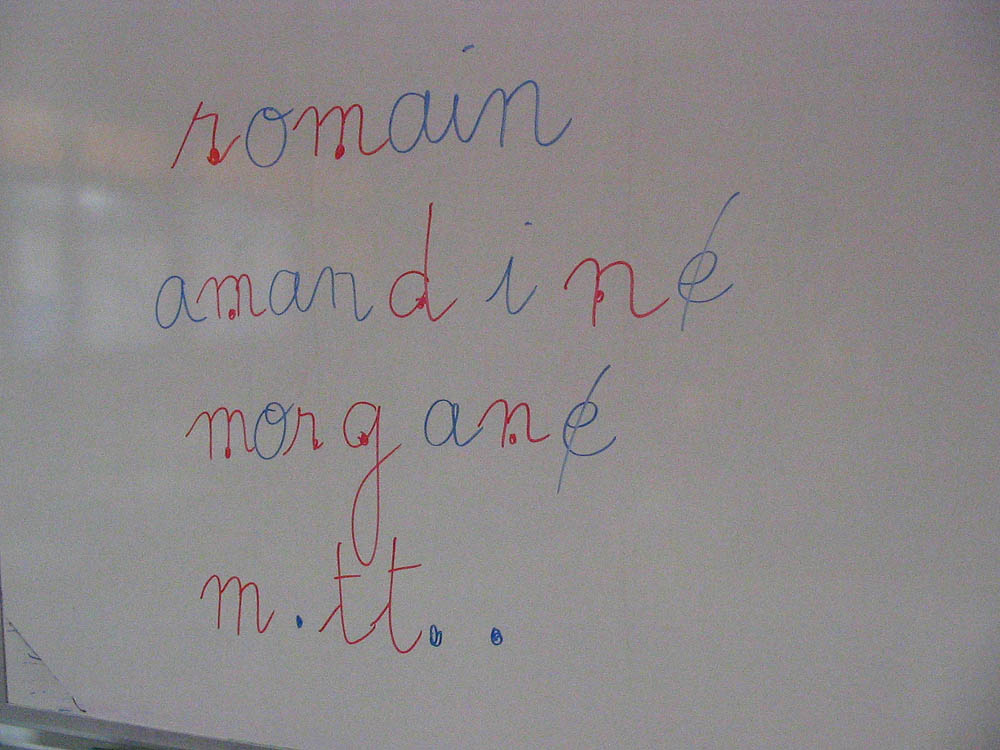 romain
amandine
morgane
m.tt..